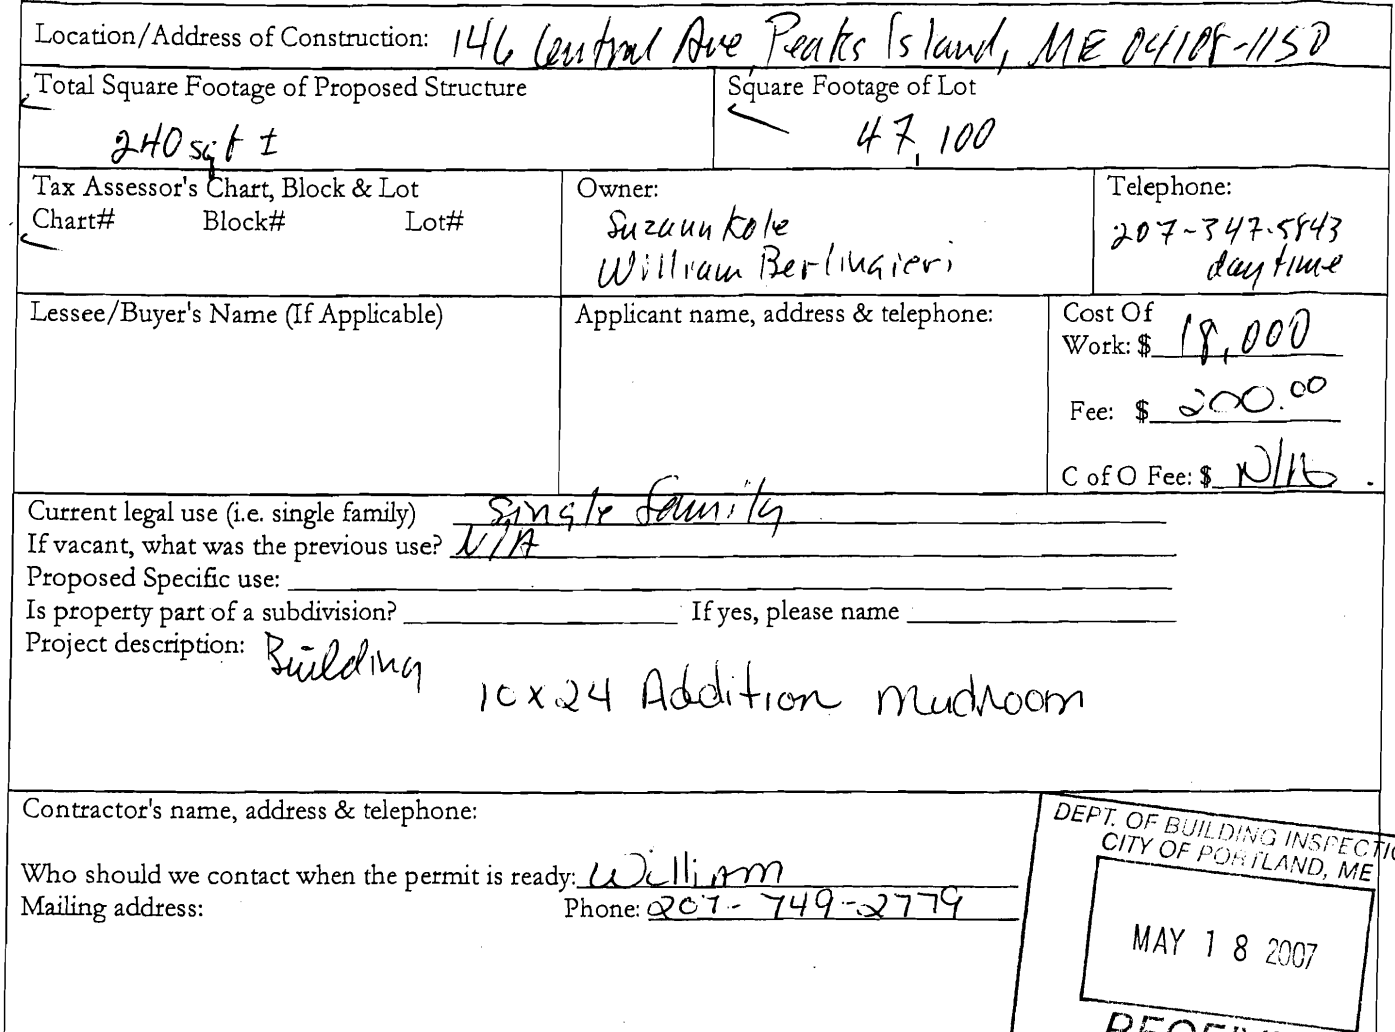 Location/Address of Construction: 146 Central Ave, Peaks Island, ME 04108-1150
Total Square Footage of Proposed Structure
240 sqft ±
Square Footage of Lot
47,100
Tax Assessor's Chart, Block & Lot
Chart# Block# Lot#
Owner:
Suzann Kole
William Berlingieri
Telephone:
207-347-5843
daytime
Lessee/Buyer's Name (If Applicable)
Applicant name, address & telephone:
Cost Of
Work: $ 18,000
Fee: $ 200.00
C of O Fee: $ N/A
Current legal use (i.e. single family) Single family
If vacant, what was the previous use? N/A
Proposed Specific use:
Is property part of a subdivision? If yes, please name
Project description: Building
10x24 Addition mudroom
Contractor's name, address & telephone:
Who should we contact when the permit is ready: William
Mailing address: Phone: 207-749-2779
DEPT. OF BUILDING INSPECTIO
CITY OF PORTLAND, ME
MAY 18 2007